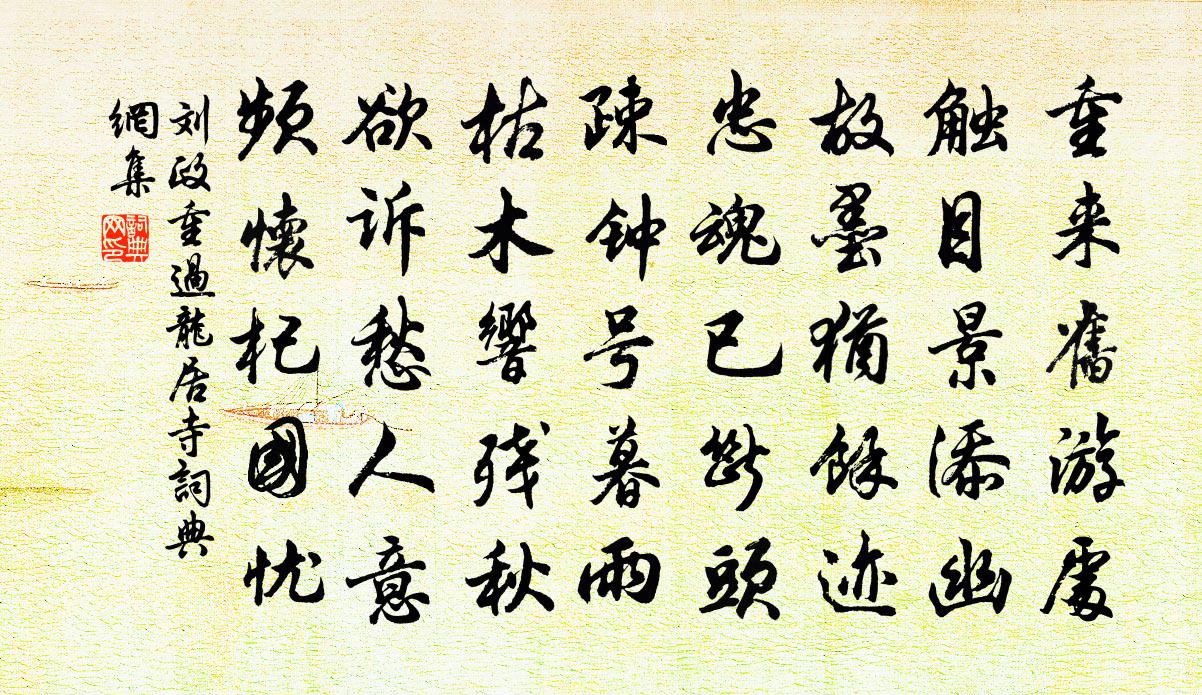 重来舊游處
触目景添幽
故墨猶餘迹
忠魂已斷頭
疎钟号暮雨
枯木響残秋
欲诉愁人意
頻懷杞國忧
刘政重過龍居寺詞典
網集
詞典網印